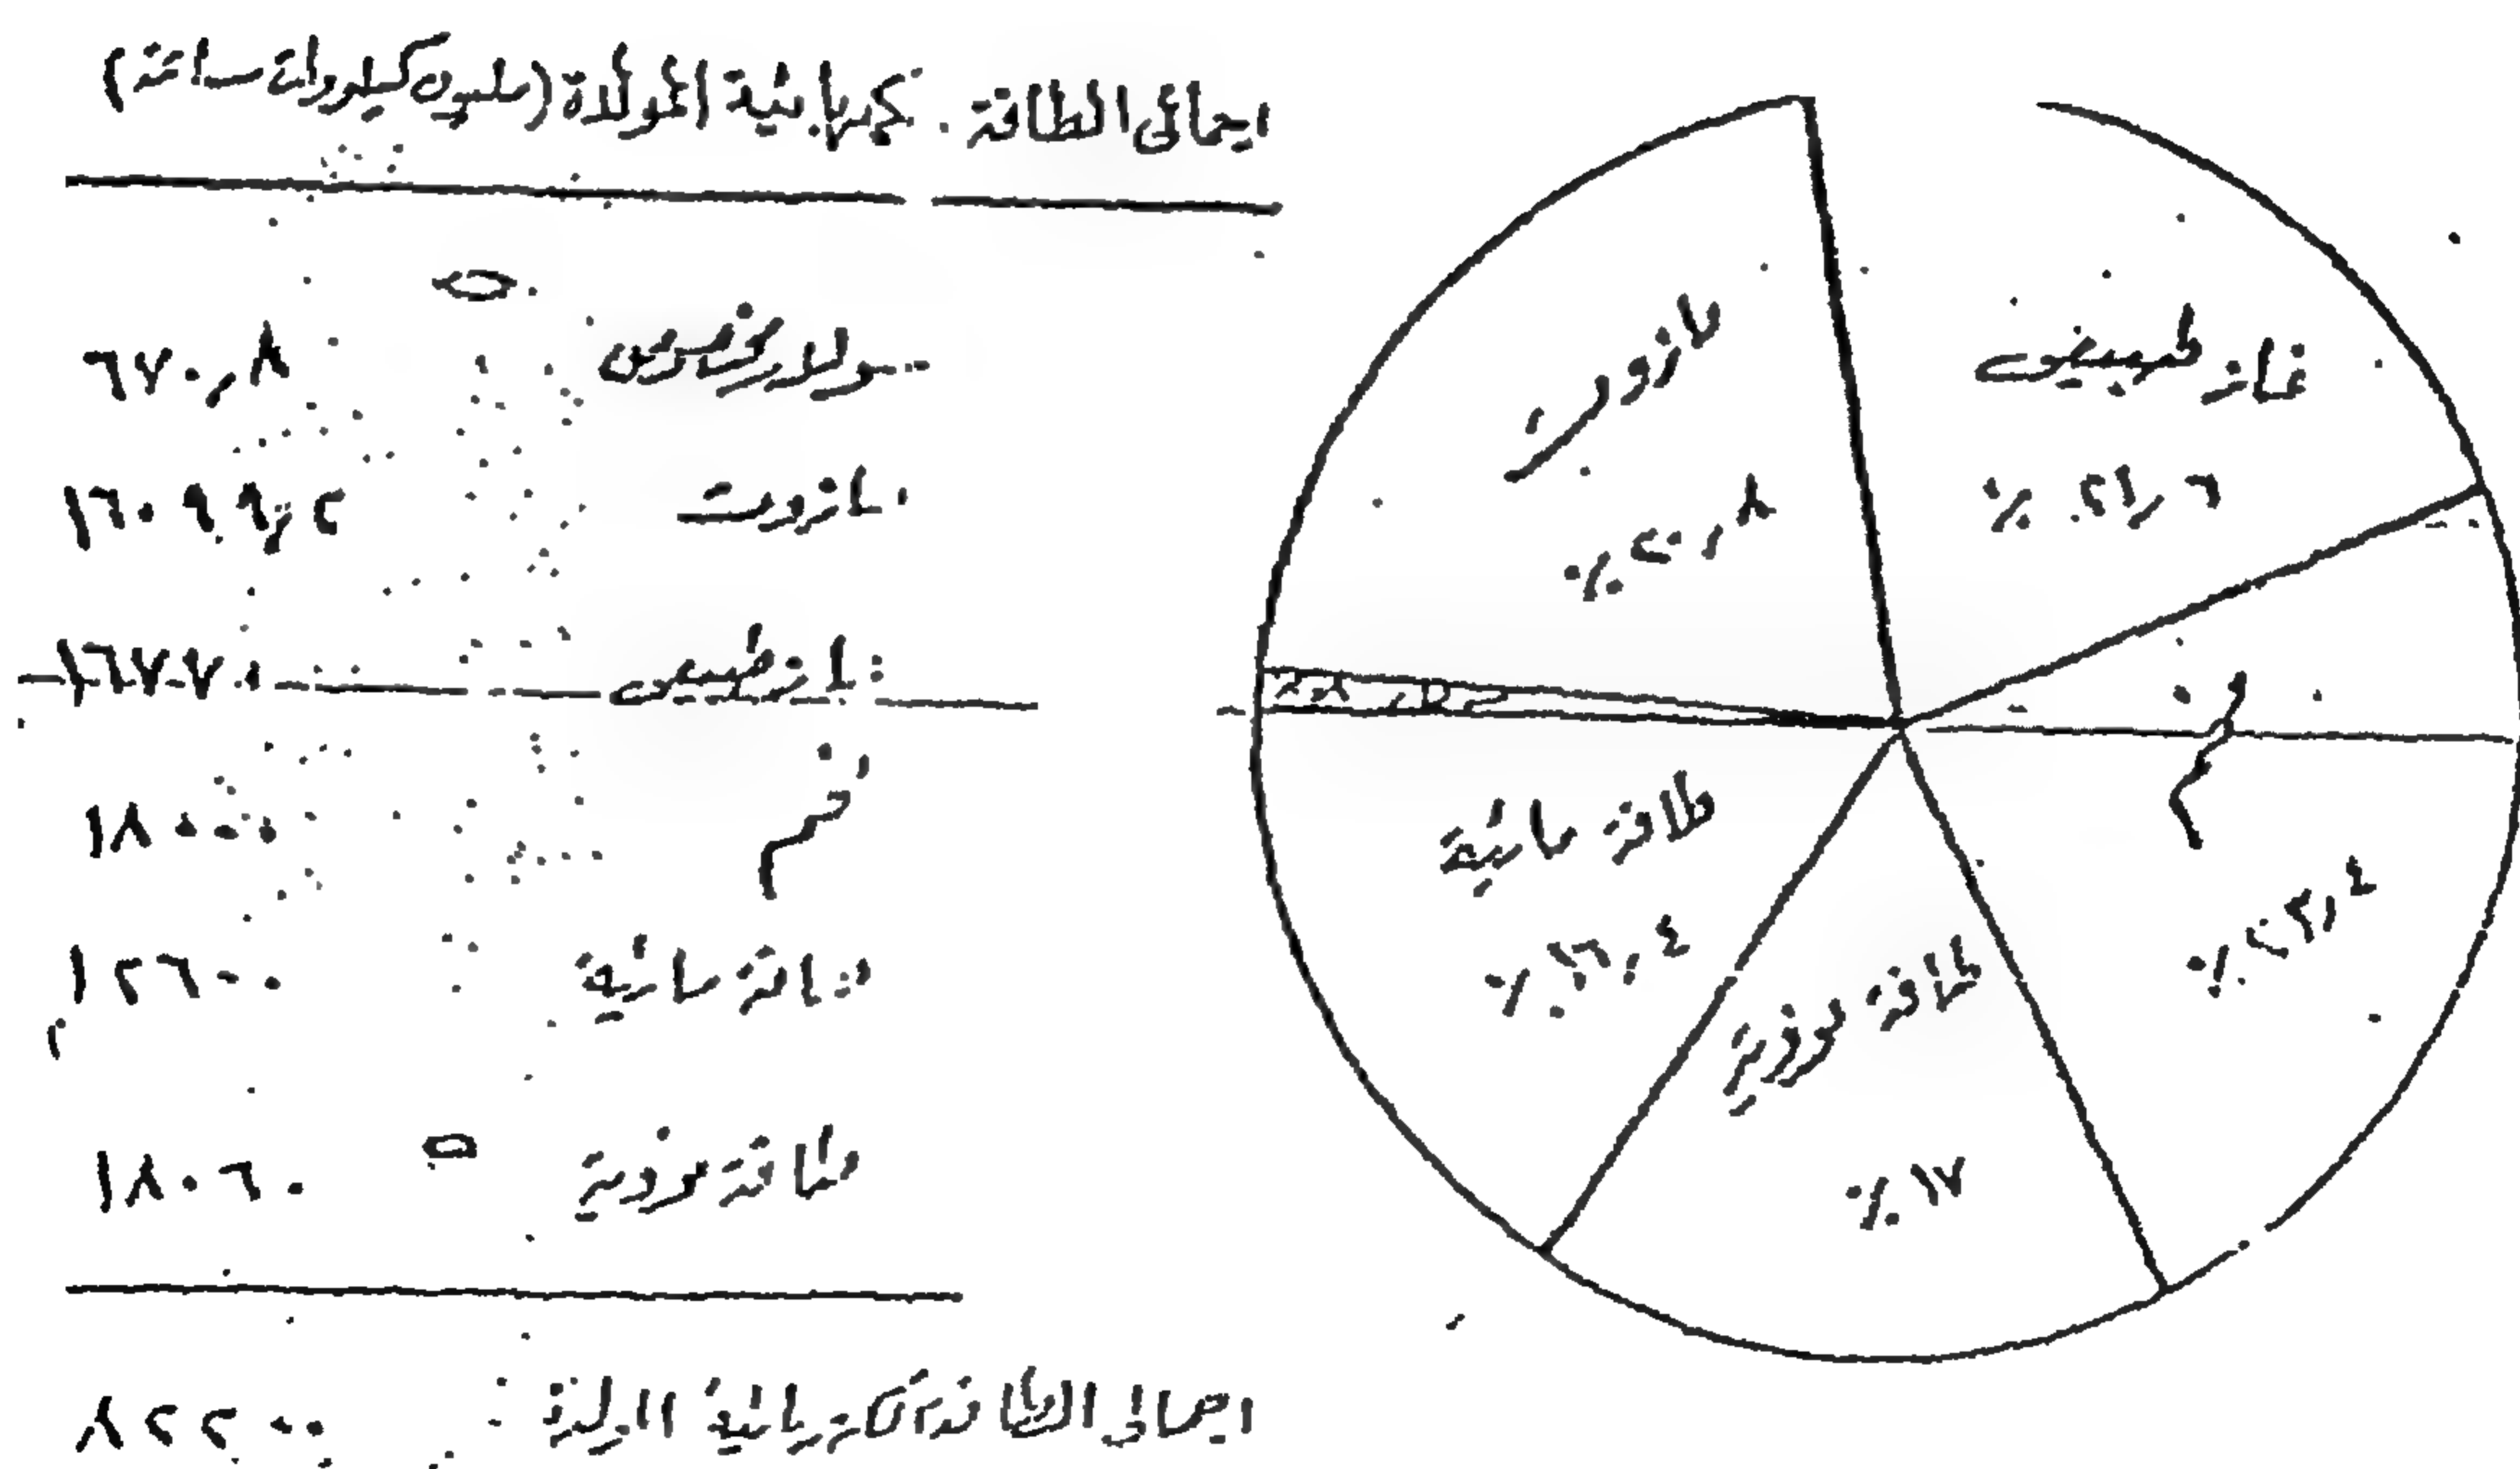 اجمالى الطاقة الكهربائية المولدة (مليون كيلووات ساعة)
سولار ٦٧٠٫٨
مازوت ١٦٠٩٩٫٢
غاز طبيعى ١٦٧٧٠
فحم ١٨٠٠٠
طاقة مائية ١٢٦٠٠
طاقة نووية ١٨٠٦٠
اجمالى الطاقة الكهربائية المولدة ٨٢٢٠٠
مازوت
غاز طبيعى
فحم
طاقة مائية
طاقة نووية
١٧ ٪